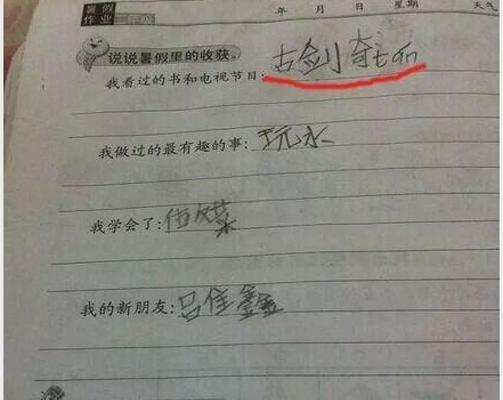 暑假
作业
年 月 日 星期 天气
说说暑假里的收获。
我看过的书和电视节目:古剑奇tan
我做过的最有趣的事:玩水
我学会了:做菜
我的新朋友:吕佳鑫